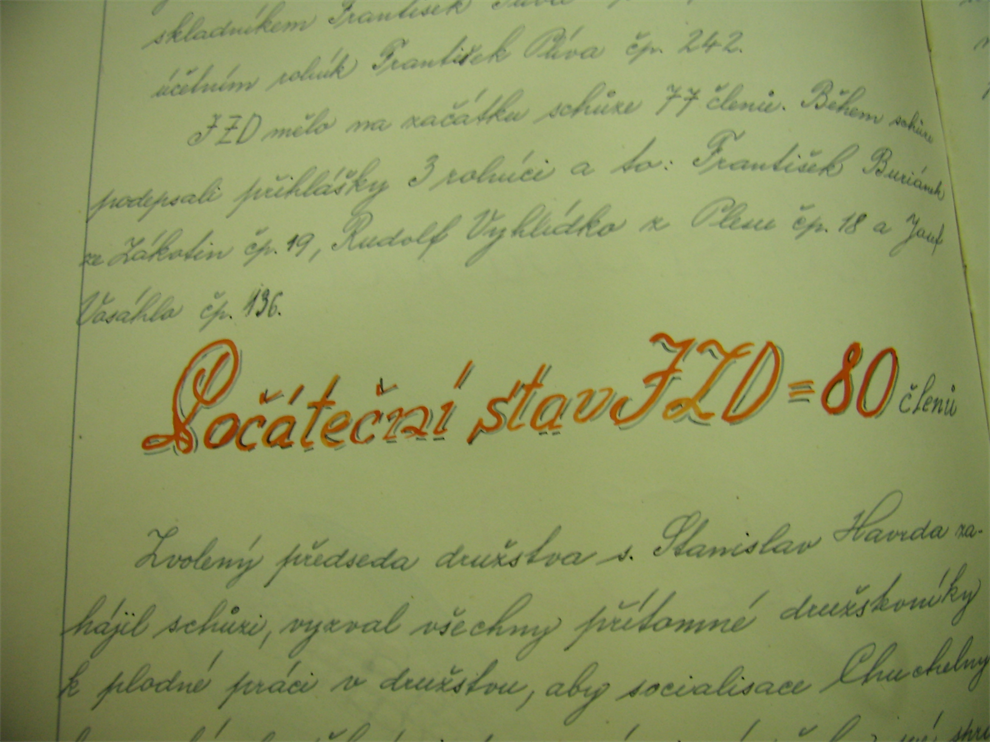 skladníkem František Půva
účetním rolník František Půva čp. 242.
JZD mělo na začátku schůze 77 členů. Během schůze
podepsali přihlášky 3 rolníci a to: František Buriánek
ze Zákotin čp. 19, Rudolf Vyhlídko z Plesu čp. 18 a Josef
Vosáhlo čp. 136.
Počáteční stav JZD = 80 členů
Zvolený předseda družstva s. Stanislav Havrda za-
hájil schůzi, vyzval všechny přítomné družstevníky
k plodné práci v družstvu, aby socialisace Chuchelny